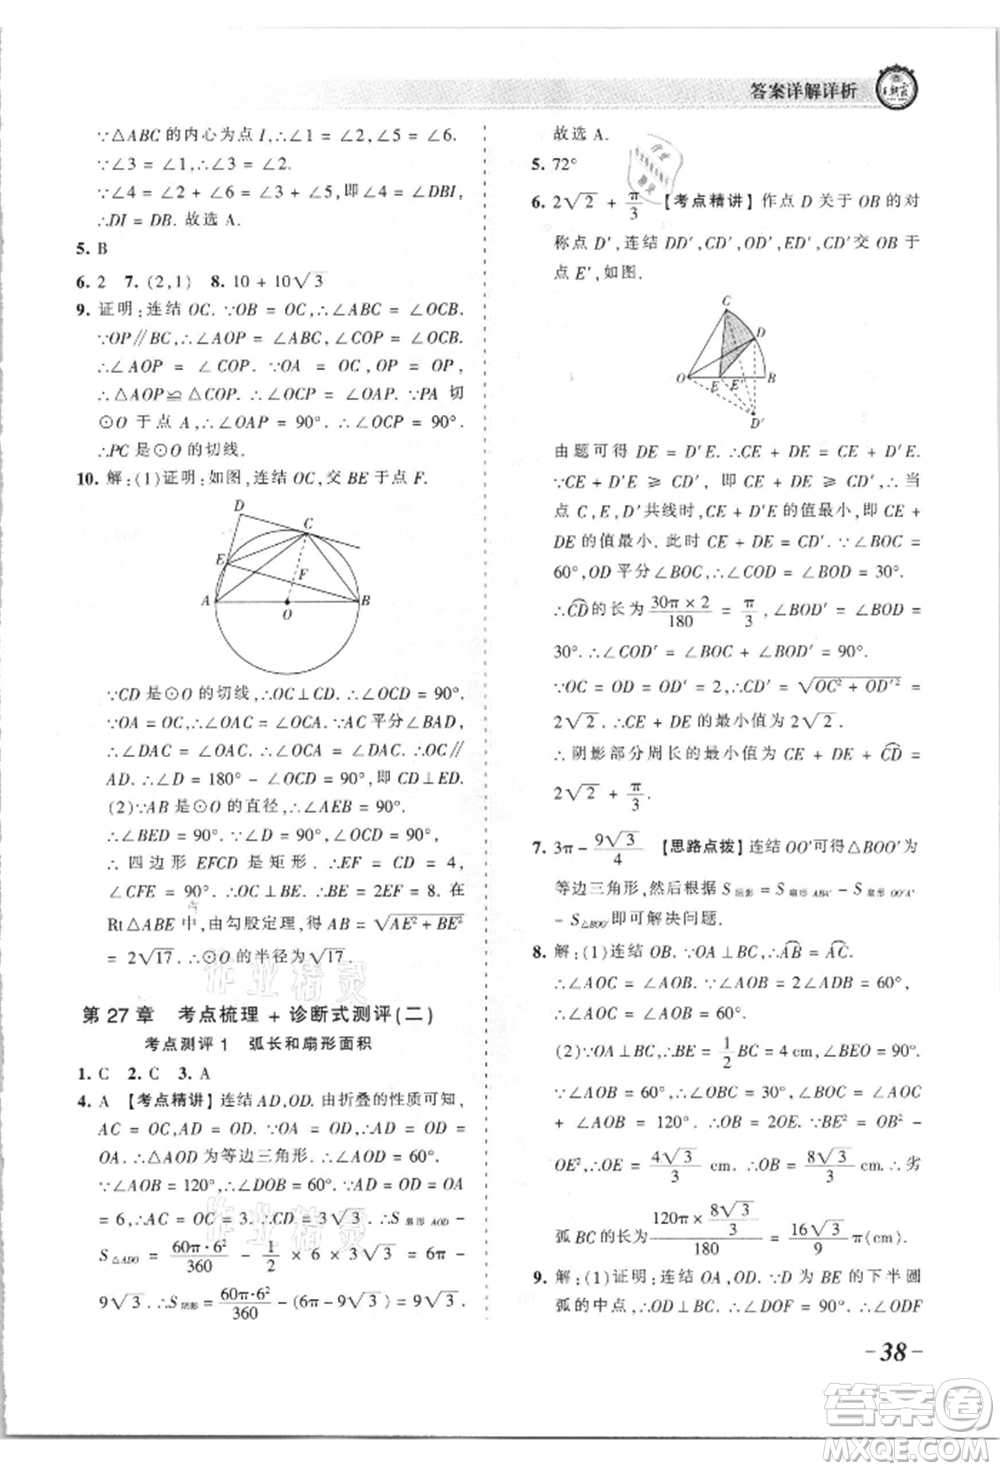 答案详解详析
王朝霞
∵△ABC 的内心为点 I,∴∠1 = ∠2,∠5 = ∠6.
∵∠3 = ∠1,∴∠3 = ∠2.
∵∠4 = ∠2 + ∠6 = ∠3 + ∠5,即∠4 = ∠DBI,
∴DI = DB. 故选 A.
5. B
6. 2 7. (2,1) 8. 10 + 10√3
9. 证明:连结 OC. ∵OB = OC,∴∠ABC = ∠OCB.
∵OP∥BC,∴∠AOP = ∠ABC,∠COP = ∠OCB.
∴∠AOP = ∠COP. ∵OA = OC, OP = OP,
∴△AOP≌△COP. ∴∠OCP = ∠OAP. ∵PA 切
⊙O 于点 A,∴∠OAP = 90°. ∴∠OCP = 90°.
∴PC 是⊙O 的切线.
10. 解:(1)证明:如图,连结 OC,交 BE 于点 F.
D
C
E
F
A
O
B
∵CD 是⊙O 的切线,∴OC⊥CD. ∴∠OCD = 90°.
∵OA = OC,∴∠OAC = ∠OCA. ∵AC 平分∠BAD,
∴∠DAC = ∠OAC. ∴∠OCA = ∠DAC. ∴OC∥
AD. ∴∠D = ∠OCD = 90°,即 CD⊥ED.
(2)∵AB 是⊙O 的直径,∴∠AEB = 90°.
∴∠BED = 90°. ∵∠D = 90°,∠OCD = 90°,
∴四边形 EFCD 是矩形. ∴EF = CD = 4,
∠CFE = 90°. ∴OC⊥BE. ∴BE = 2EF = 8. 在
Rt△ABE 中,由勾股定理,得 AB = √(AE² + BE²)
= 2√17. ∴⊙O 的半径为√17.
作业精灵
第 27 章 考点梳理 + 诊断式测评(二)
考点测评 1 弧长和扇形面积
1. C 2. C 3. A
4. A 【考点精讲】连结 AD,OD. 由折叠的性质可知,
AC = OC,AD = OD. ∵OA = OD,∴AD = OD =
OA. ∴△AOD 为等边三角形. ∴∠OAD = 60°,
∠AOB = 120°,∠AOD = 60°. ∵AD = OD = OA
= 6,∴AC = OC = 3. ∴CD = 3√3. ∴S扇形AOD −
S△ADO = 60π·6²/360 − 1/2 × 6 × 3√3 = 6π −
9√3. ∴S阴影 = 60π·6²/360 − (6π − 9√3) = 9√3.
作业精灵
故选 A.
5. 72°
6. 2√2 + π/3 【考点精讲】作点 D 关于 OB 的对
称点 D′,连结 DD′,OD′,ED′,CD′交 OB 于
点 E′,如图.
C
D
O
E
E′
B
D′
由题可得 DE = D′E. ∴CE + DE = CE + D′E.
∵CE + D′E ≥ CD′,∴CE + DE ≥ CD′,∴当
点 C,E,D′共线时,CE + D′E 的值最小,即 CE +
DE 的值最小. 此时 CE + DE = CD′. ∵∠BOC =
60°,OD 平分∠BOC,∴∠COD = ∠BOD = 30°.
∴CD⌒的长为 30π × 2/180 = π/3. ∵∠BOD′ = ∠BOD =
30°. ∴∠COD′ = ∠BOC + ∠BOD′ = 90°.
∵OC = OD = OD′ = 2,∴CD′ = √(OC² + OD′²) =
2√2. ∴CE + DE 的最小值为 2√2.
∴阴影部分周长的最小值为 CE + DE + CD⌒ =
2√2 + π/3.
7. 3π − 9√3/4 【思路点拨】连结 OO′可得△BOO′为
等边三角形,然后根据 S阴影 = S扇形ABA′ − S扇形OO′A′
− S△BOO′即可解决问题.
8. 解:(1)连结 OB. ∵OA⊥BC,∴AB⌒ = AC⌒.
∴∠AOC = ∠AOB. ∵∠AOB = 60°,
∴∠AOC = 60°.
(2)∵OA⊥BC,∴BE = 1/2BC = 4 cm,∠BEO = 90°.
∵∠AOB = 60°,∴∠OBE = 30°,∠BOC = ∠AOC
+ ∠AOB = 120°. ∴OB = 2OE. ∵OB² = BE² +
OE²,∴OE = 4√3/3 cm. ∴OB = 8√3/3 cm. ∴劣
弧 BC 的长为 (120π × 8√3/3)/180 = 16√3/9 π(cm).
9. 解:(1)证明:连结 OA,OD. ∵D 为 BE 的下半圆
弧的中点,∴OD⊥BC. ∴∠DOF = 90°. ∴∠ODF
- 38 -
答案圈
MXQE.COM